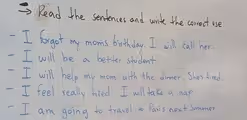 → Read the sentences and write the correct use
- I forgot my moms birthday. I will call her.
- I will be a better student
- I will help my mom with the dinner. She's tired.
- I feel really tired I will take a nap
- I am going to travel to Paris next summer